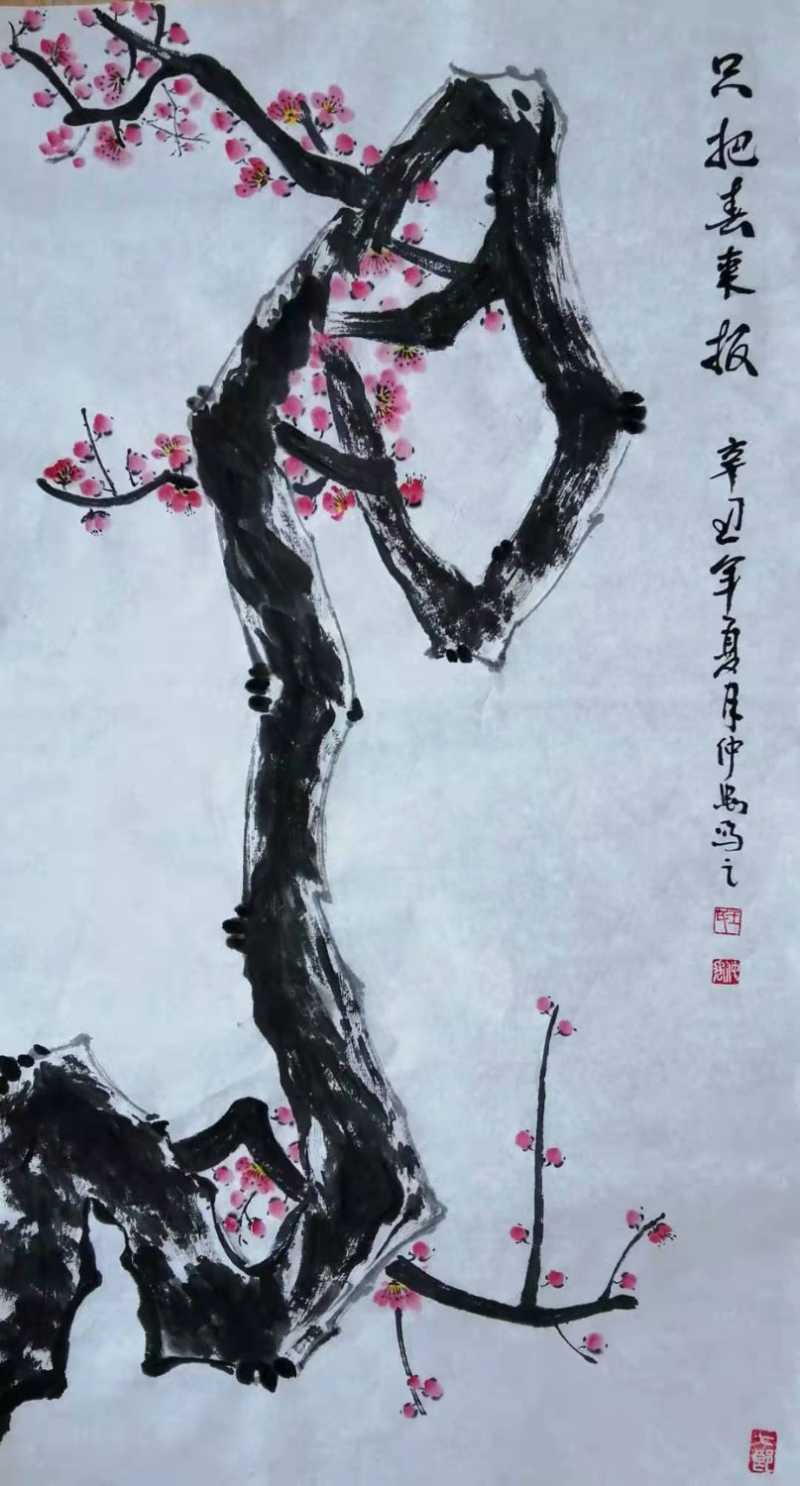 只把春来报
辛丑年夏月仲 写之